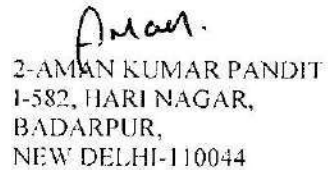 Aman.
2-AMAN KUMAR PANDIT
1-582, HARI NAGAR,
BADARPUR,
NEW DELHI-110044